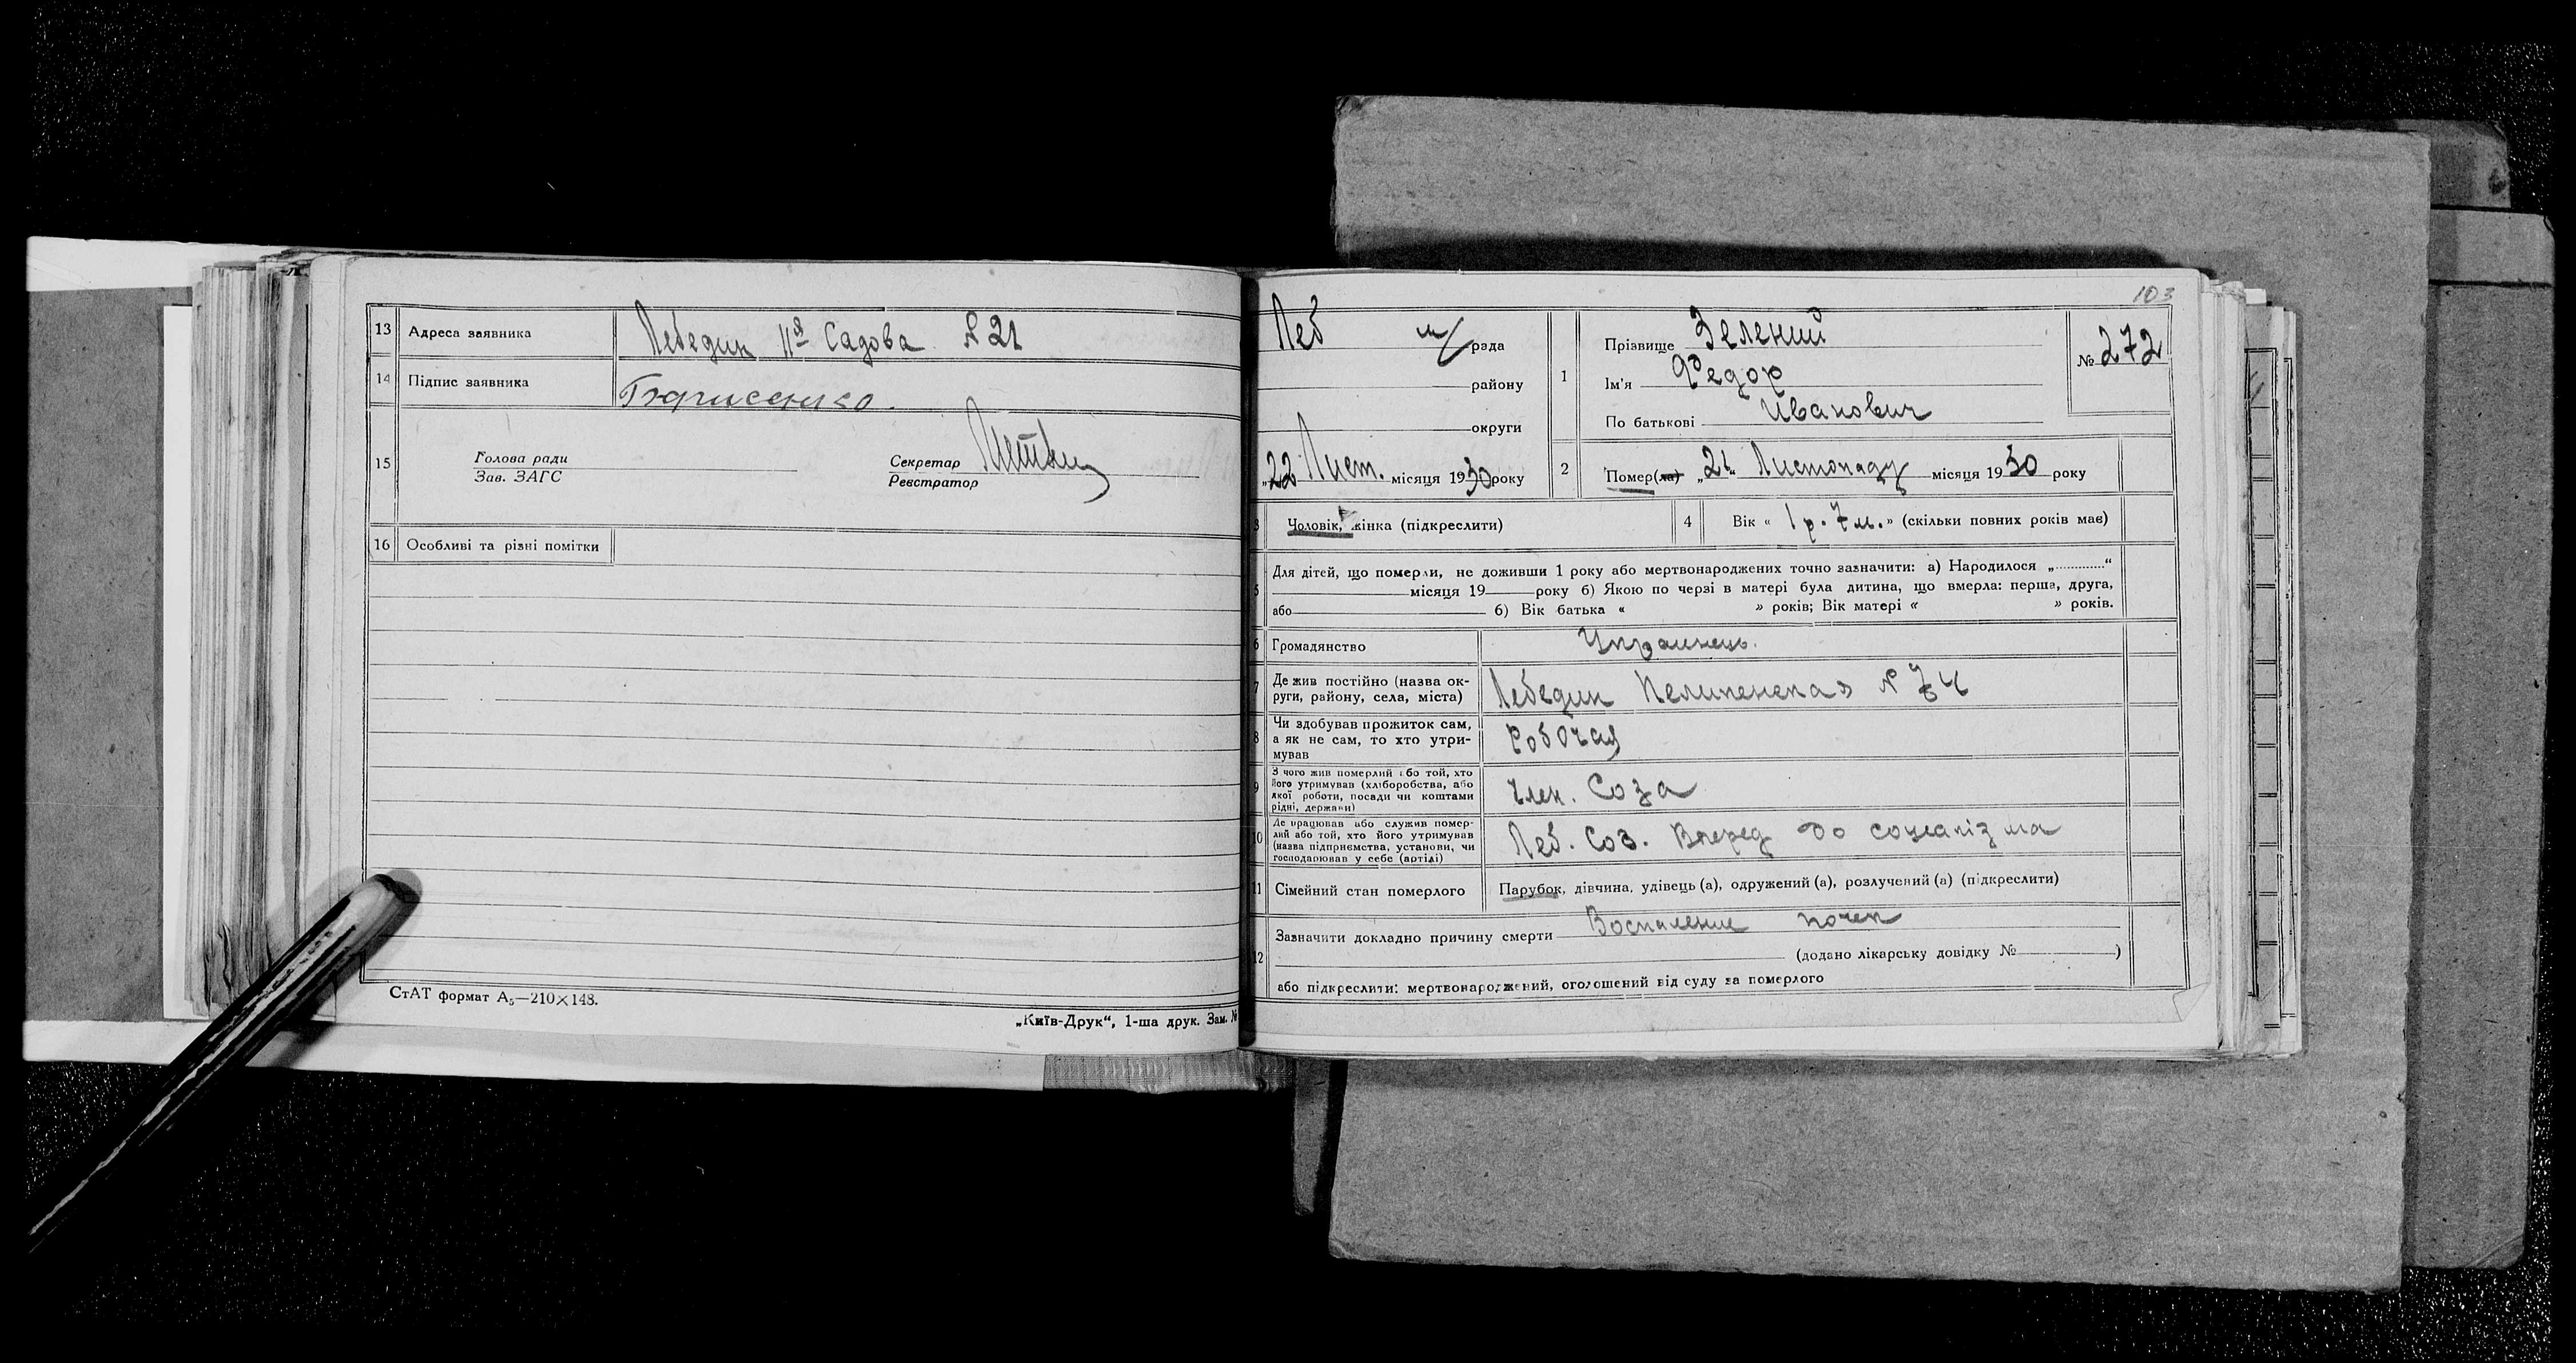 13 Адреса заявника Лебедин ІІ-а Садова № 21
14 Підпис заявника
15 Голова ради
Зав. ЗАГС
Секретар
Реєстратор
16 Особливі та різні помітки
СтАТ формат А₅—210×148.
„Київ-Друк“, 1-ша друк. Зам. №
103
Леб м/рада
району
округи
„22 Лист. місяця 1930 року
1 Прізвище Зелений
Ім'я Федор
По батькові Иванович
№ 272
2 Помер(ла) „21 Листопаду місяця 1930 року
3 Чоловік, жінка (підкреслити)
4 Вік « 1 р. 7 м. » (скільки повних років має)
5 Для дітей, що померли, не доживши 1 року або мертвонароджених точно зазначити: а) Народилося „............“
місяця 19 року б) Якою по черзі в матері була дитина, що вмерла: перша, друга,
або б) Вік батька « » років; Вік матері « » років.
6 Громадянство Украинець.
7 Де жив постійно (назва ок-
руги, району, села, міста) Лебедин №
8 Чи здобував прожиток сам,
а як не сам, то хто утри-
мував Робочая
9 З чого жив померлий або той, хто
його утримував (хліборобства, або
якої роботи, посади чи коштами
рідні, держави) член. Соза
10 Де працював або служив помер-
лий або той, хто його утримував
(назва підприємства, установи, чи
господарював у себе (артілі) Леб. Соз. Вперед до
11 Сімейний стан померлого Парубок, дівчина, удівець (а), одружений (а), розлучений (а) (підкреслити)
12 Зазначити докладно причину смерти Воспаление почек
(додано лікарську довідку № )
або підкреслити: мертвонароджений, оголошений від суду за померлого